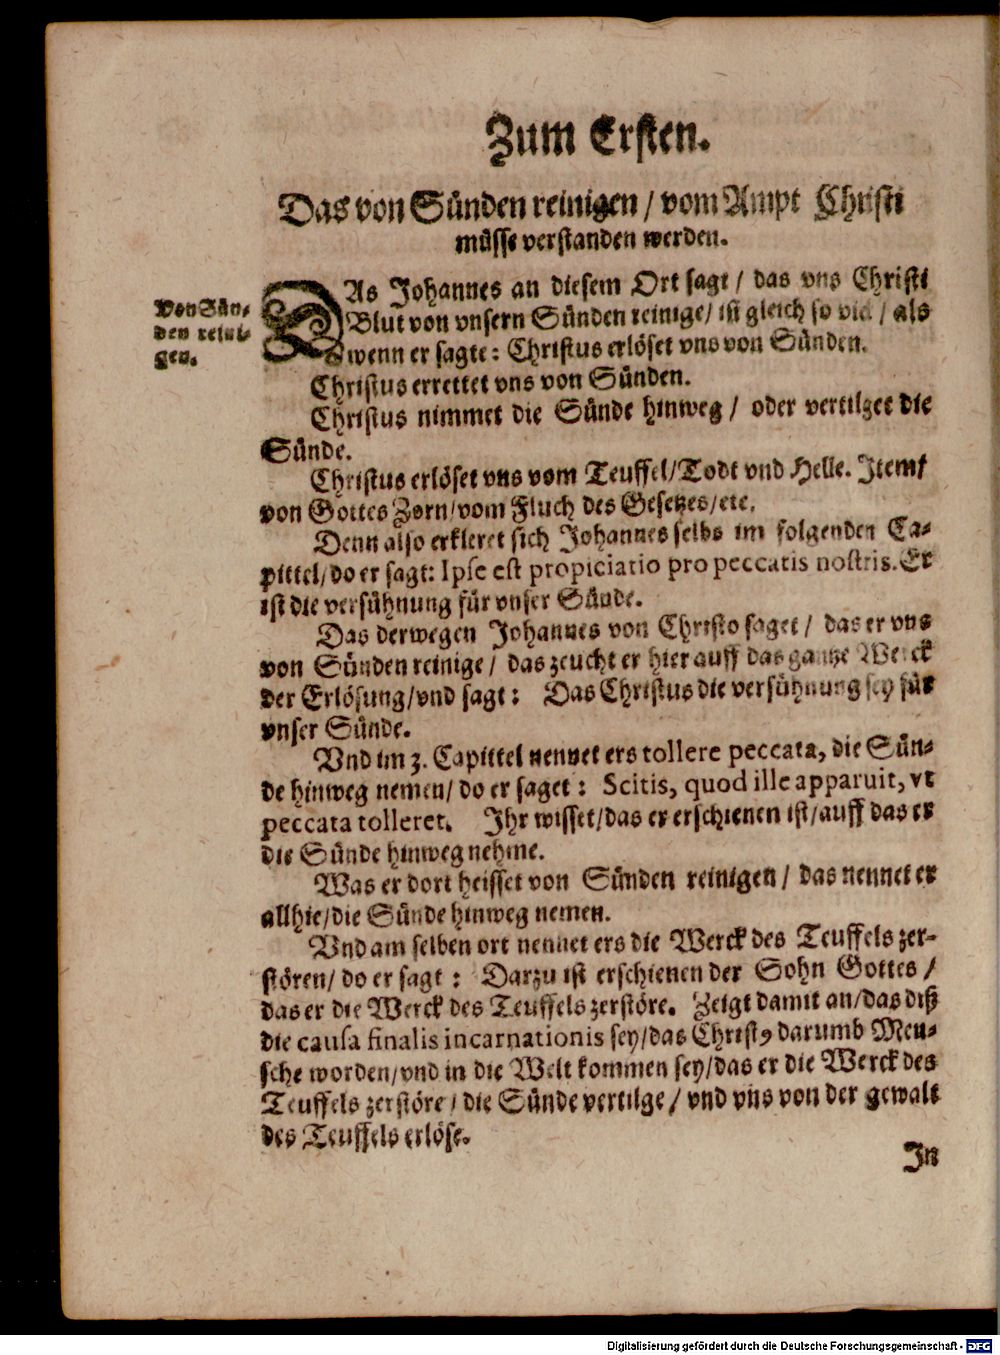 Zum Ersten.
Das von Sünden reinigen / vom Ampt Christi
müsse verstanden werden.
Von Sün-
den reini-
gen.
DAs Johannes an diesem Ort sagt / das vns Christi
Blut von vnsern Sünden reinige / ist gleich so viel / als
wenn er sagte: Christus erlöset vns von Sünden.
Christus errettet vns von Sünden.
Christus nimmet die Sünde hinweg / oder vertilget die
Sünde.
Christus erlöset vns vom Teuffel / Todt vnd Helle. Item /
von Gottes Zorn / vom Fluch des Gesetzes / etc.
Denn also erkleret sich Johannes selbs im folgenden Ca-
pittel / do er sagt: Ipse est propiciatio pro peccatis nostris. Er
ist die versühnung für vnser Sünde.
Das derwegen Johannes von Christo saget / das er vns
von Sünden reinige / das zeucht er hierauff das gantze Werck
der Erlösung / vnd sagt: Das Christus die versühnung sey für
vnser Sünde.
Vnd im 3. Capittel nennet ers tollere peccata, die Sün-
de hinweg nemen / do er saget: Scitis, quod ille apparuit, vt
peccata tolleret. Ihr wisset / das er erschienen ist / auff das er
die Sünde hinweg nehme.
Was er dort heisset von Sünden reinigen / das nennet er
allhie / die Sünde hinweg nemen.
Vnd am selben ort nennet ers die Werck des Teuffels zer-
stören / do er sagt: Darzu ist erschienen der Sohn Gottes /
das er die Werck des Teuffels zerstöre. Zeigt damit an / das diß
die causa finalis incarnationis sey / das Christꝰ darumb Men-
sche worden / vnd in die Welt kommen sey / das er die Werck des
Teuffels zerstöre / die Sünde vertilge / vnd vns von der gewalt
des Teuffels erlöse.
In
Digitalisierung gefördert durch die Deutsche Forschungsgemeinschaft - DFG